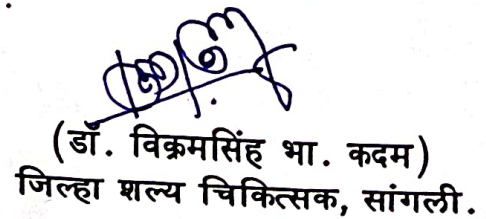 (डॉ. विक्रमसिंह भा. कदम)
जिल्हा शल्य चिकित्सक, सांगली.